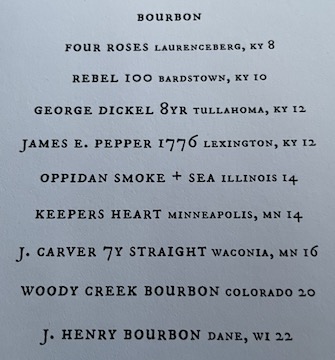 BOURBON
FOUR ROSES LAURENCEBERG, KY 8
REBEL 100 BARDSTOWN, KY 10
GEORGE DICKEL 8YR TULLAHOMA, KY 12
JAMES E. PEPPER 1776 LEXINGTON, KY 12
OPPIDAN SMOKE + SEA ILLINOIS 14
KEEPERS HEART MINNEAPOLIS, MN 14
J. CARVER 7Y STRAIGHT WACONIA, MN 16
WOODY CREEK BOURBON COLORADO 20
J. HENRY BOURBON DANE, WI 22